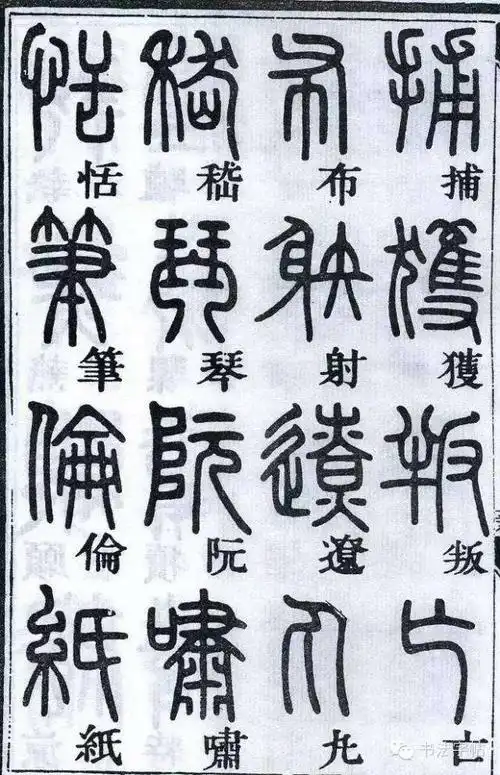 捕獲叛亡
布射遼丸
嵇琴阮嘯
恬筆倫紙
书法字帖